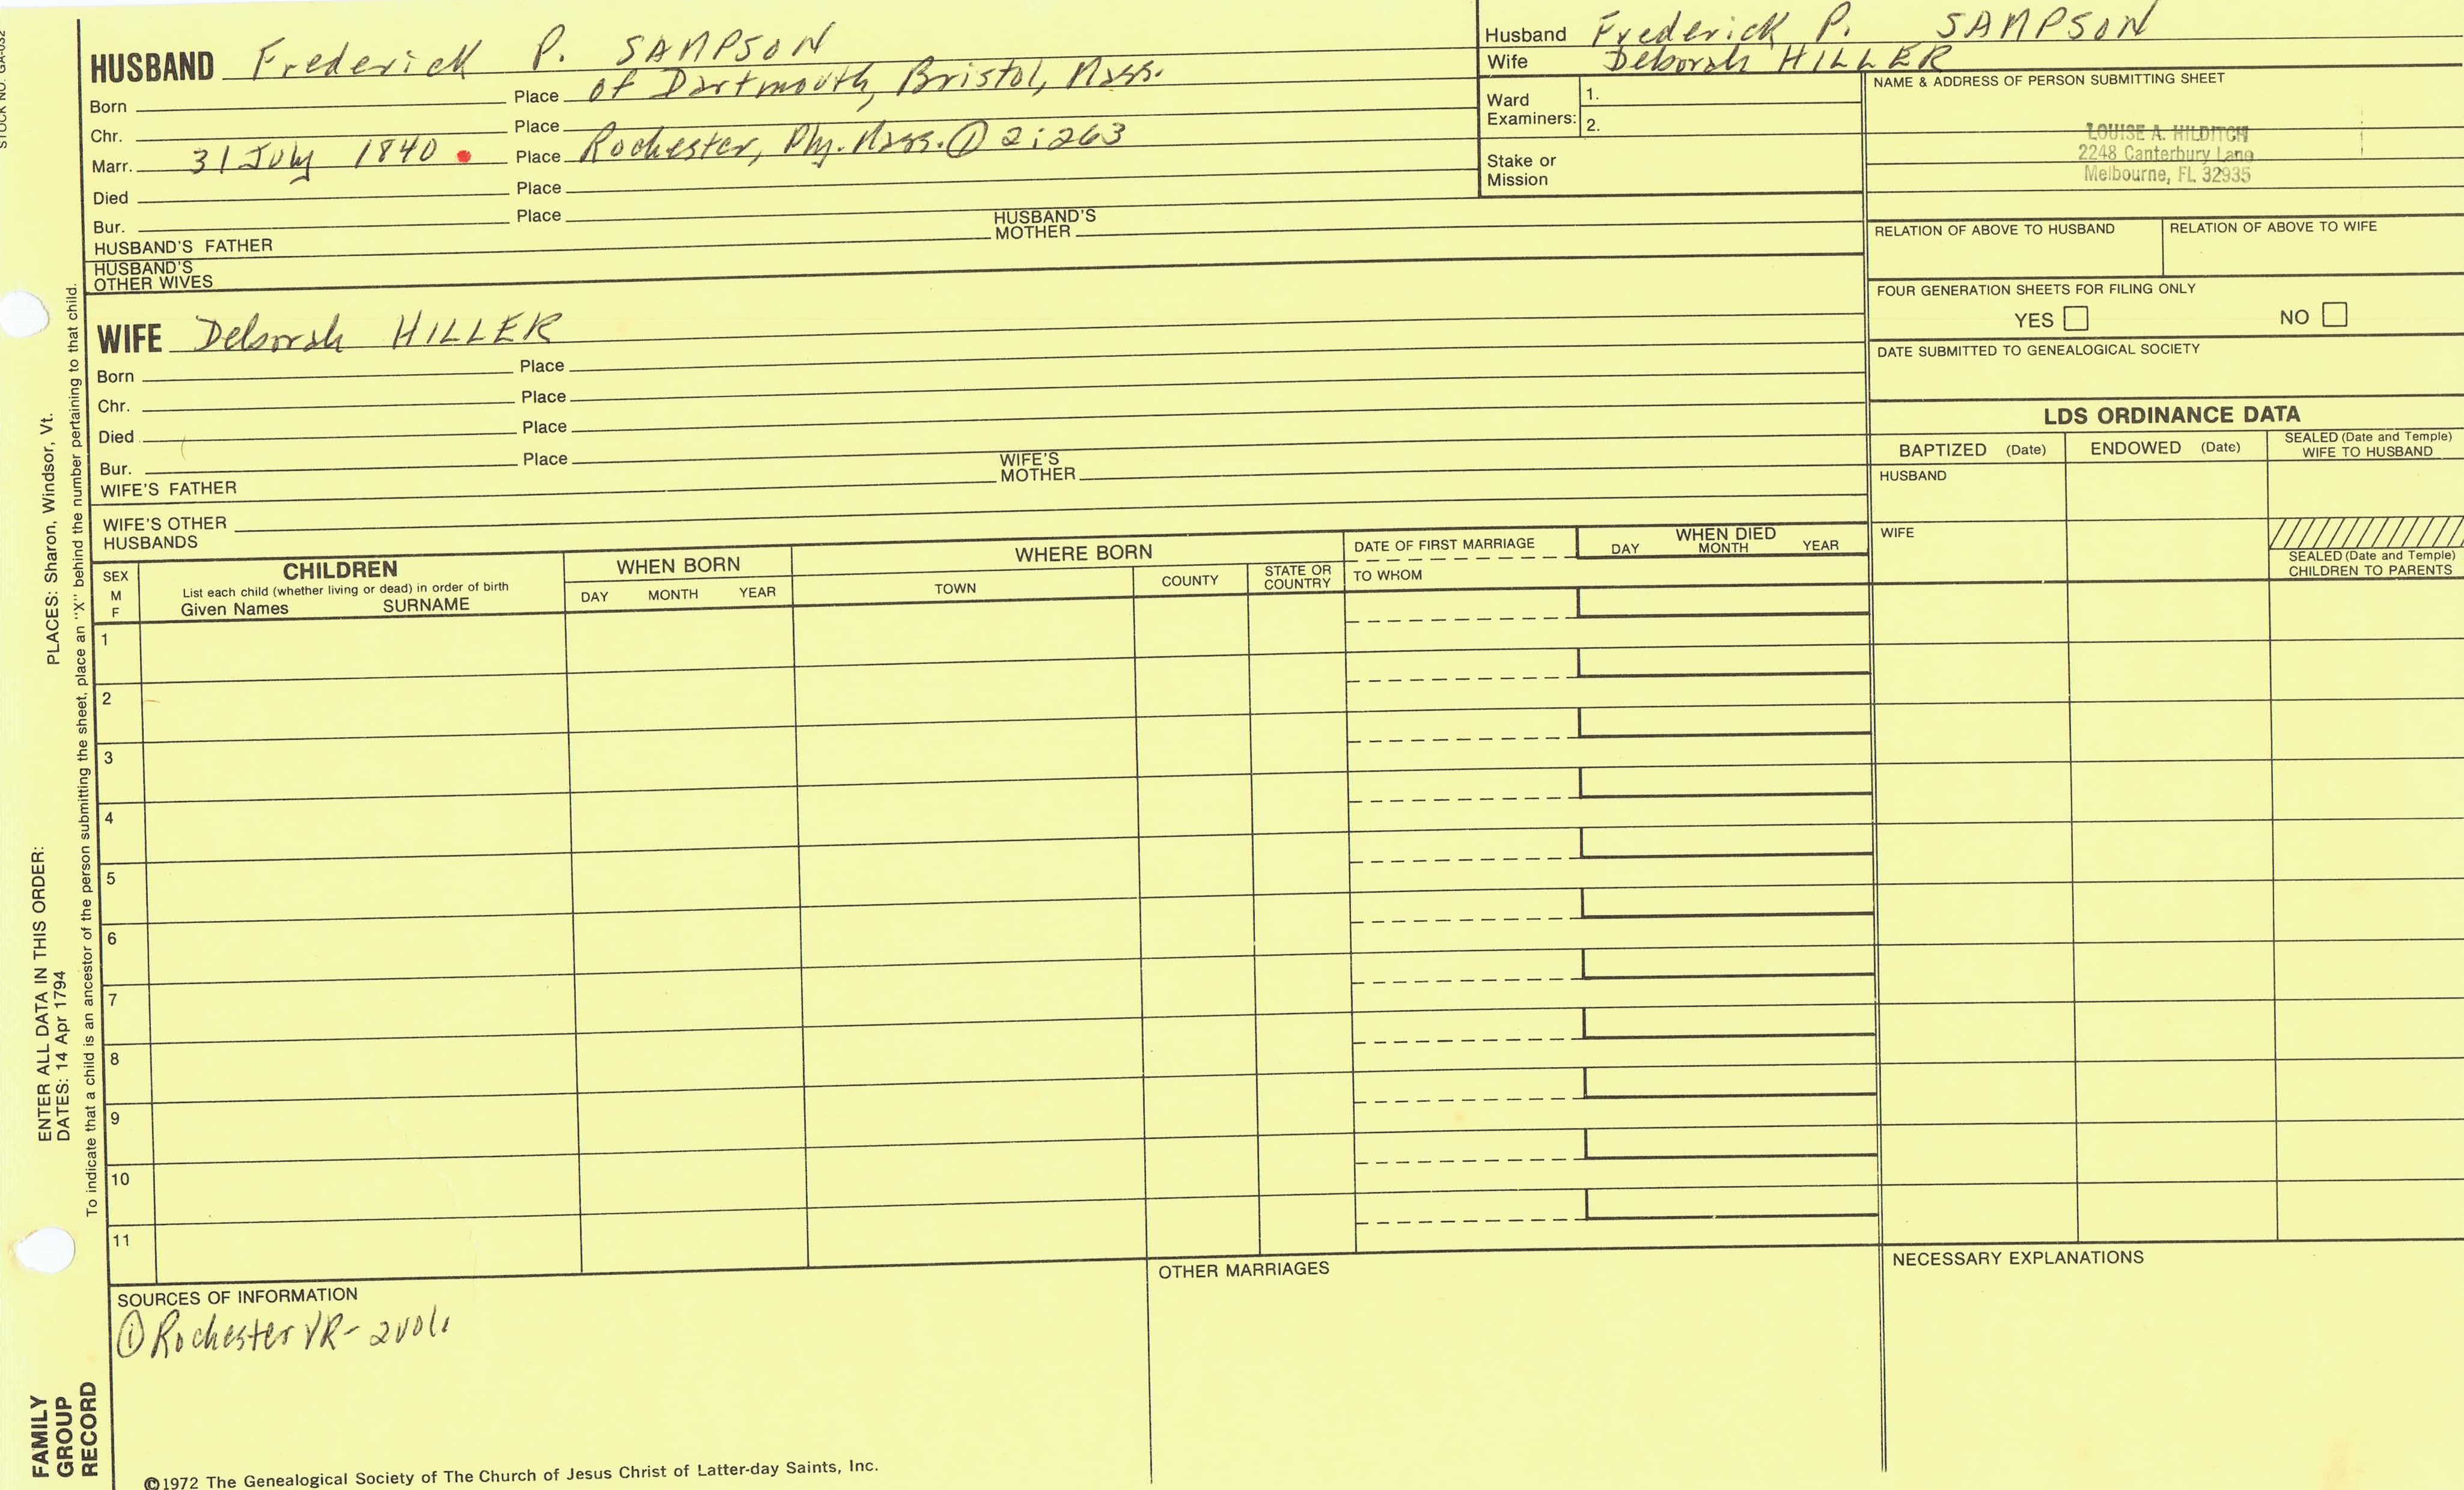 STOCK NO. GA-032
HUSBAND Frederick P. SAMPSON
Born Place of Dartmouth, Bristol, Mass.
Chr. Place
Marr. 31 July 1840 Place Rochester, Ply. Mass. ① 2:263
Died Place
Bur. Place
HUSBAND'S FATHER HUSBAND'S MOTHER
HUSBAND'S OTHER WIVES
WIFE Deborah HILLER
Born Place
Chr. Place
Died Place
Bur. Place
WIFE'S FATHER WIFE'S MOTHER
WIFE'S OTHER HUSBANDS
Husband Frederick P. SAMPSON
Wife Deborah HILLER
Ward Examiners: 1.
2.
Stake or Mission
NAME & ADDRESS OF PERSON SUBMITTING SHEET
LOUISE A. HILDITCH
2248 Canterbury Lane
Melbourne, FL 32935
RELATION OF ABOVE TO HUSBAND RELATION OF ABOVE TO WIFE
FOUR GENERATION SHEETS FOR FILING ONLY
YES NO
DATE SUBMITTED TO GENEALOGICAL SOCIETY
LDS ORDINANCE DATA
BAPTIZED (Date) ENDOWED (Date) SEALED (Date and Temple) WIFE TO HUSBAND
HUSBAND
WIFE
SEALED (Date and Temple) CHILDREN TO PARENTS
SEX M F
CHILDREN
List each child (whether living or dead) in order of birth
Given Names SURNAME
WHEN BORN
DAY MONTH YEAR
WHERE BORN
TOWN COUNTY STATE OR COUNTRY
DATE OF FIRST MARRIAGE
TO WHOM
WHEN DIED
DAY MONTH YEAR
1
2
3
4
5
6
7
8
9
10
11
SOURCES OF INFORMATION
① Rochester VR- 2 vol.
OTHER MARRIAGES
NECESSARY EXPLANATIONS
©1972 The Genealogical Society of The Church of Jesus Christ of Latter-day Saints, Inc.
FAMILY GROUP RECORD
ENTER ALL DATA IN THIS ORDER:
DATES: 14 Apr 1794
PLACES: Sharon, Windsor, Vt.
To indicate that a child is an ancestor of the person submitting the sheet, place an "X" behind the number pertaining to that child.